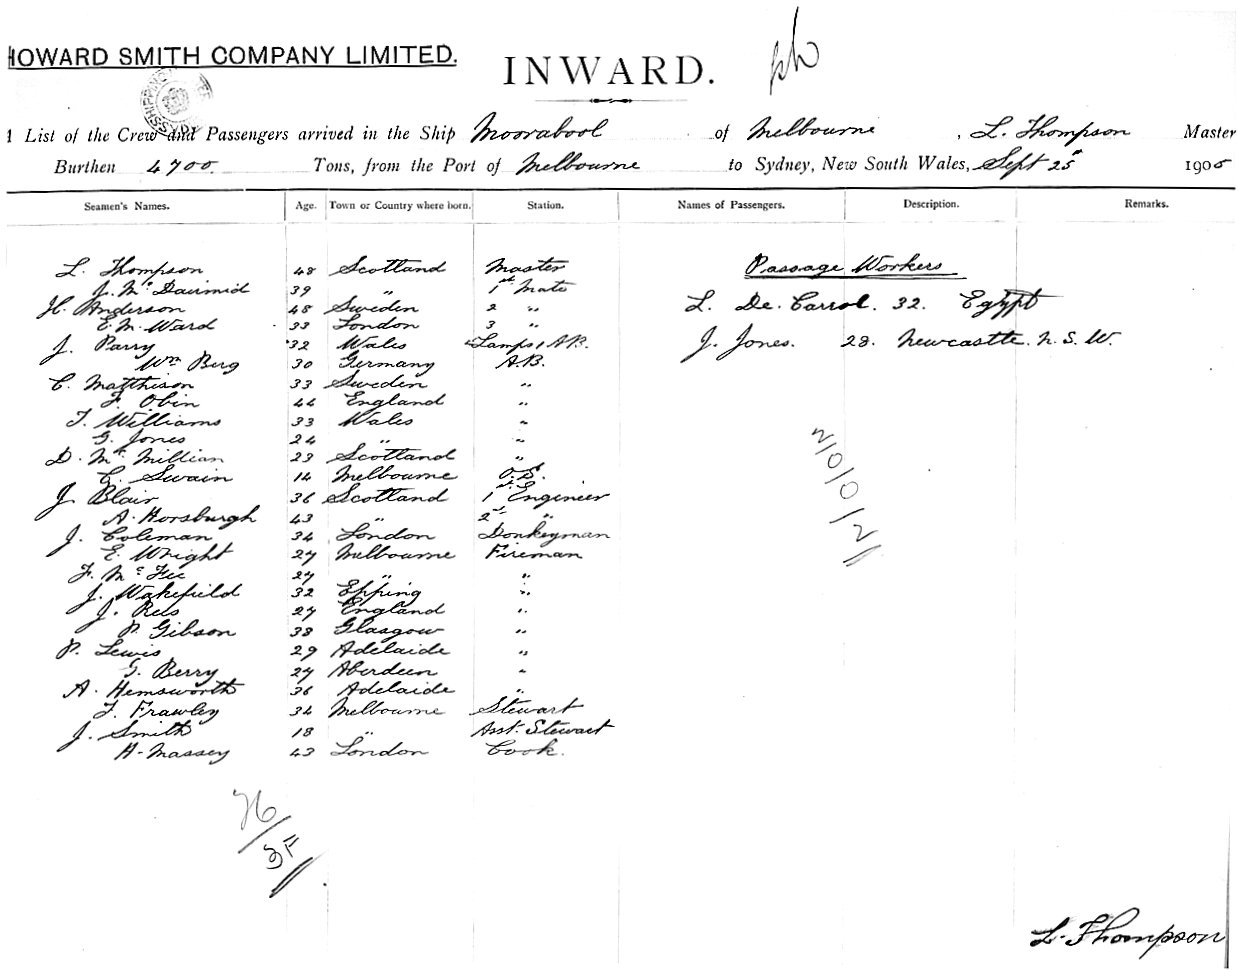 HOWARD SMITH COMPANY LIMITED.
INWARD.
List of the Crew and Passengers arrived in the Ship Moorabool of Melbourne, L. Thompson Master
Burthen 4700 Tons, from the Port of Melbourne to Sydney, New South Wales, Sept 25th 1905
Seamen's Names. Age. Town or Country where born. Station. Names of Passengers. Description. Remarks.
L. Thompson 48 Scotland Master Passage Workers
J. Mc Dairmid 39 " 1st Mate
H. Anderson 48 Sweden 2 " L. De. Carrol. 32. Egypt
E. M. Ward 33 London 3 "
J. Parry 32 Wales Lamps, A.B. J. Jones. 28. Newcastle. N. S. W.
Wm Berg 30 Germany A.B.
C. Matthison 33 Sweden "
F. Obin 44 England "
T. Williams 33 Wales "
G. Jones 24 " "
D. Mc Millian 23 Scotland "
C. Swain 14 Melbourne O.S.
J. Blair 36 Scotland 1st Engineer
A. Horsburgh 43 " 2nd "
J. Coleman 34 London Donkeyman
E. Wright 27 Melbourne Fireman
F. Mc Fee 27 " "
J. Wakefield 32 Epping "
J. Rees 27 England "
P. Gibson 38 Glasgow "
P. Lewis 29 Adelaide "
G. Berry 27 Aberdeen "
A. Hemsworth 36 Adelaide "
T. Frawley 34 Melbourne Stewart
J. Smith 18 " Asst. Stewart
H. Massey 43 London Cook.
2/0/0/2/
26/
3F
L. Thompson